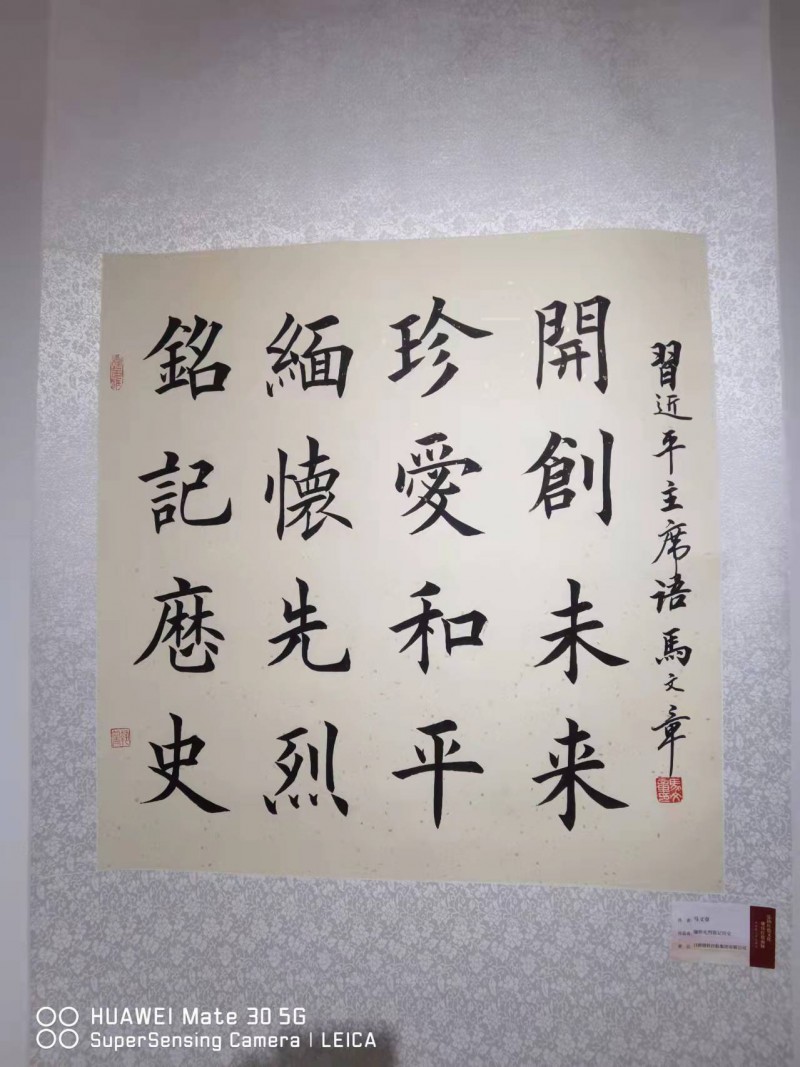 銘記歷史
緬懐先烈
珍愛和平
開創未来
習近平主席语 馬文章
HUAWEI Mate 30 5G
SuperSensing Camera | LEICA